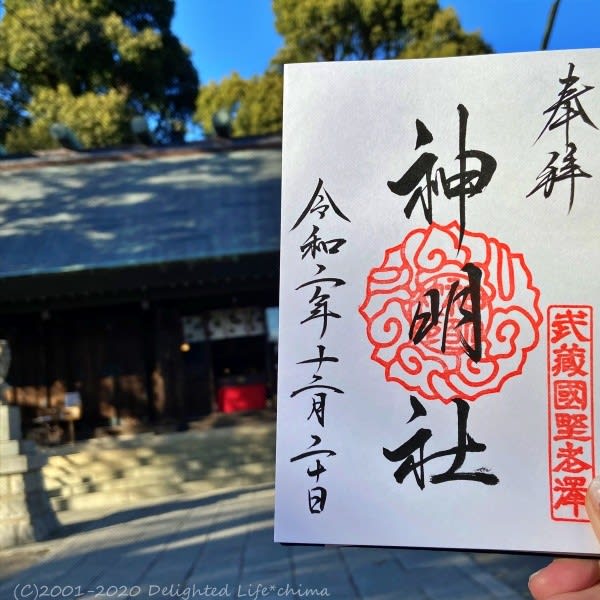 奉拝
神明社
武蔵國野老澤
令和二年十二月二十日
(C)2001-2020 Delighted Life*chima